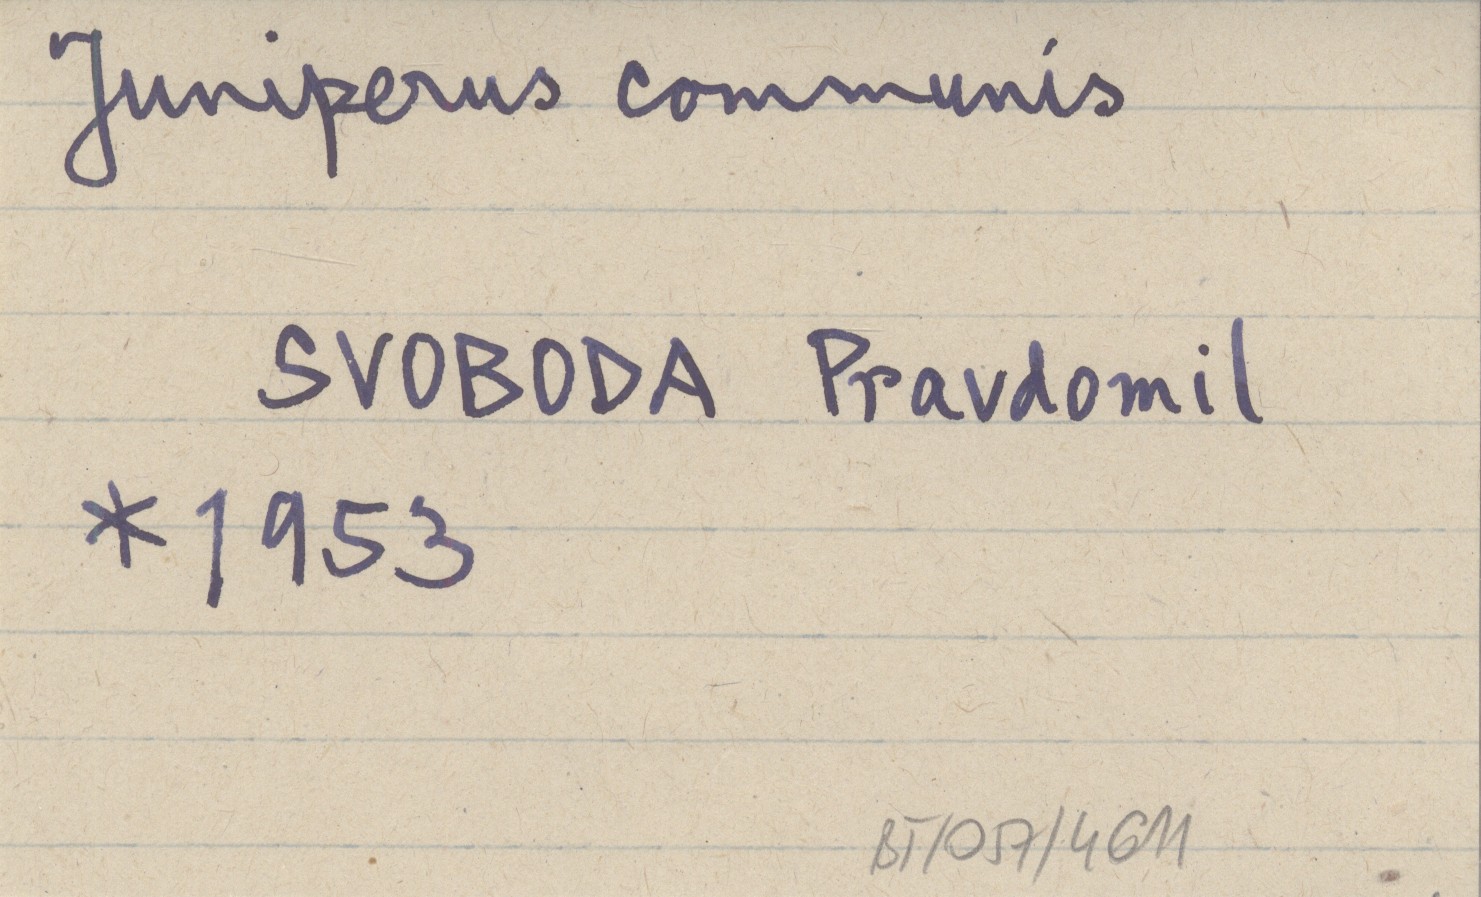 Juniperus communis
SVOBODA Pravdomil
*1953
BT/057/4611